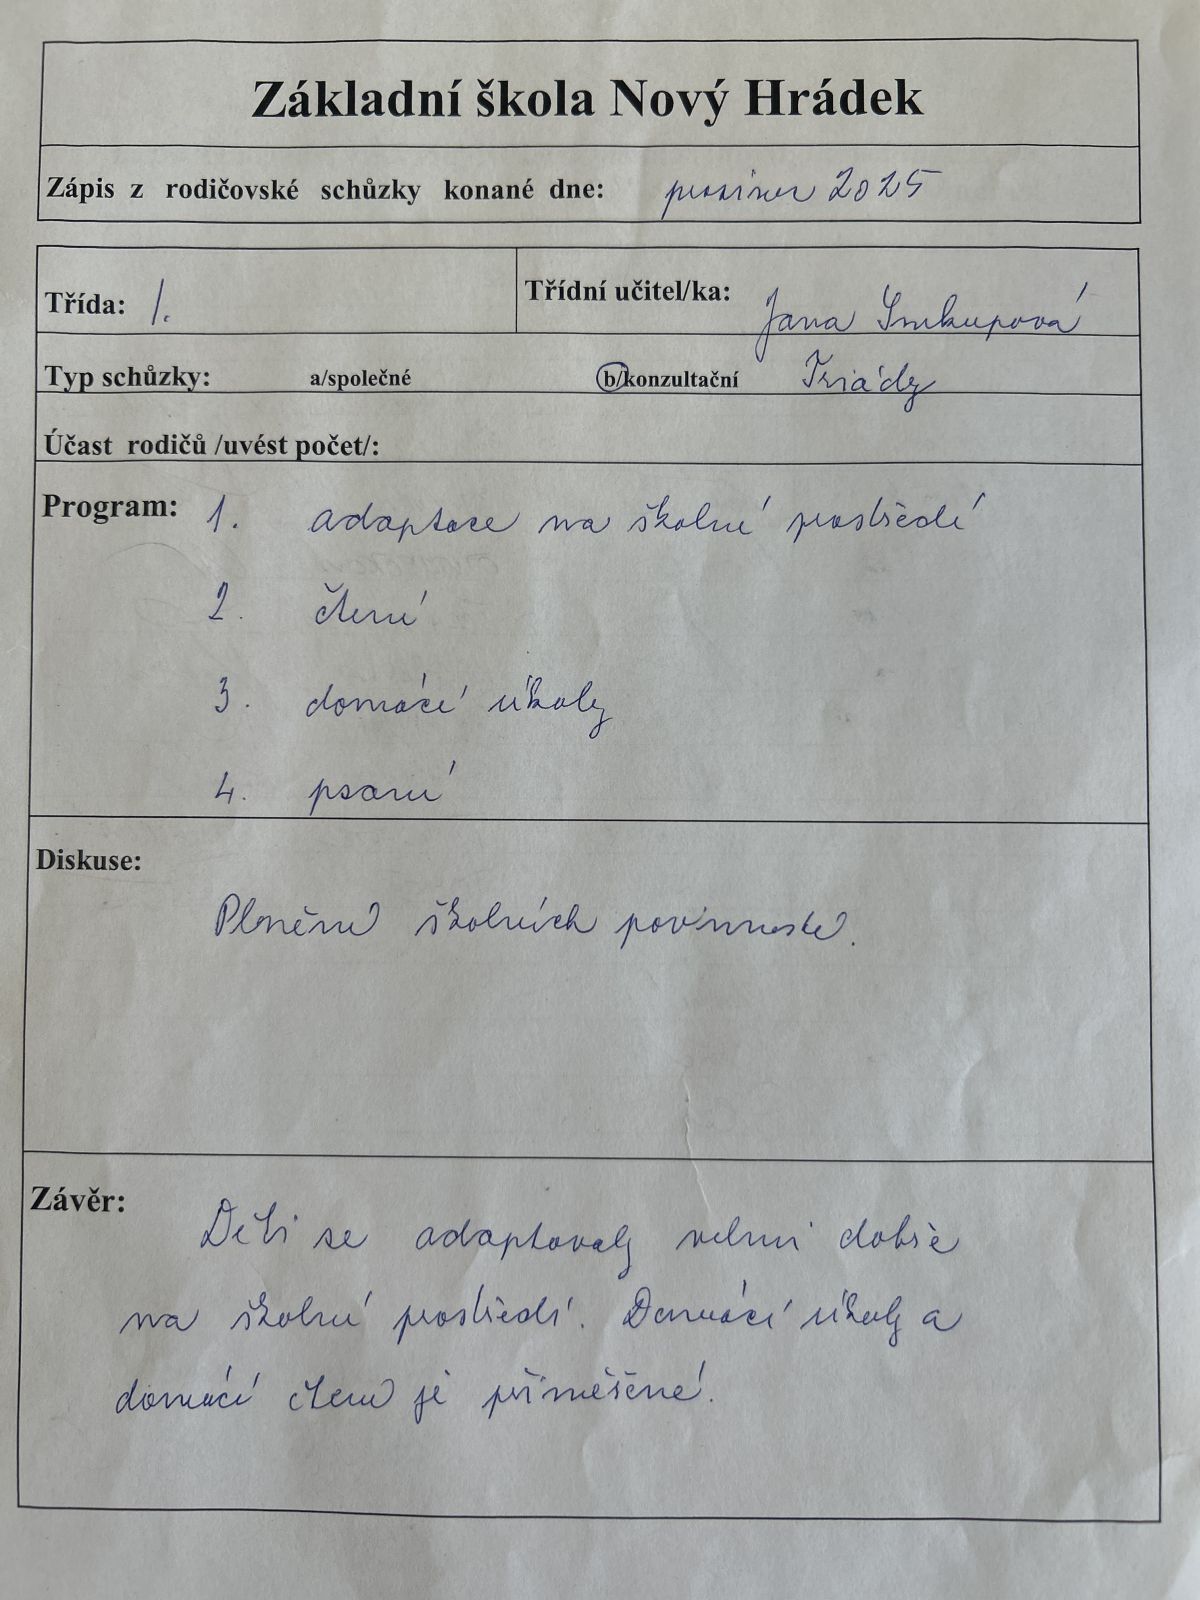 Základní škola Nový Hrádek
Zápis z rodičovské schůzky konané dne: prosinec 2025
Třída: 1. Třídní učitel/ka: Jana
Typ schůzky: a/společné b/konzultační Triády
Účast rodičů /uvést počet/:
Program: 1. adaptace na školní prostředí
2. čtení
3. domácí úkoly
4. psaní
Diskuse:
Plnění školních povinností.
Závěr:
Děti se adaptovaly velmi dobře
na školní prostředí. Domácí úkoly a
domácí čtení je přiměřené.